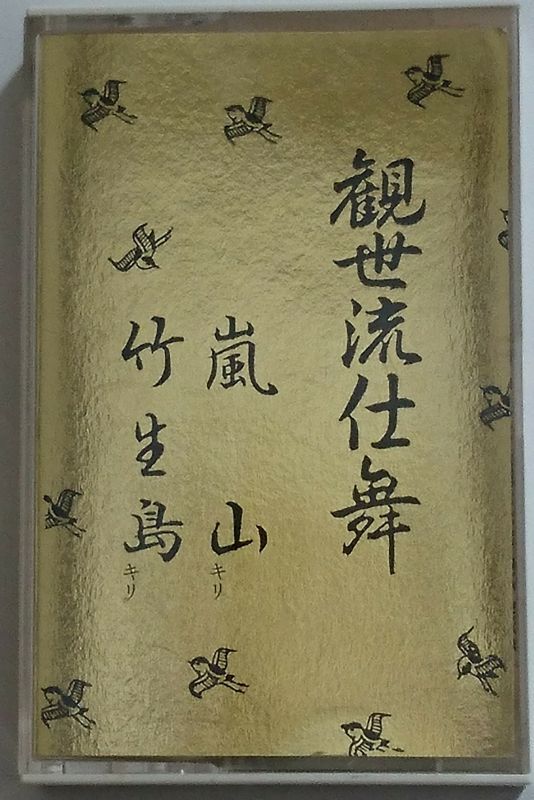 観世流仕舞
嵐山キリ
竹生島キリ